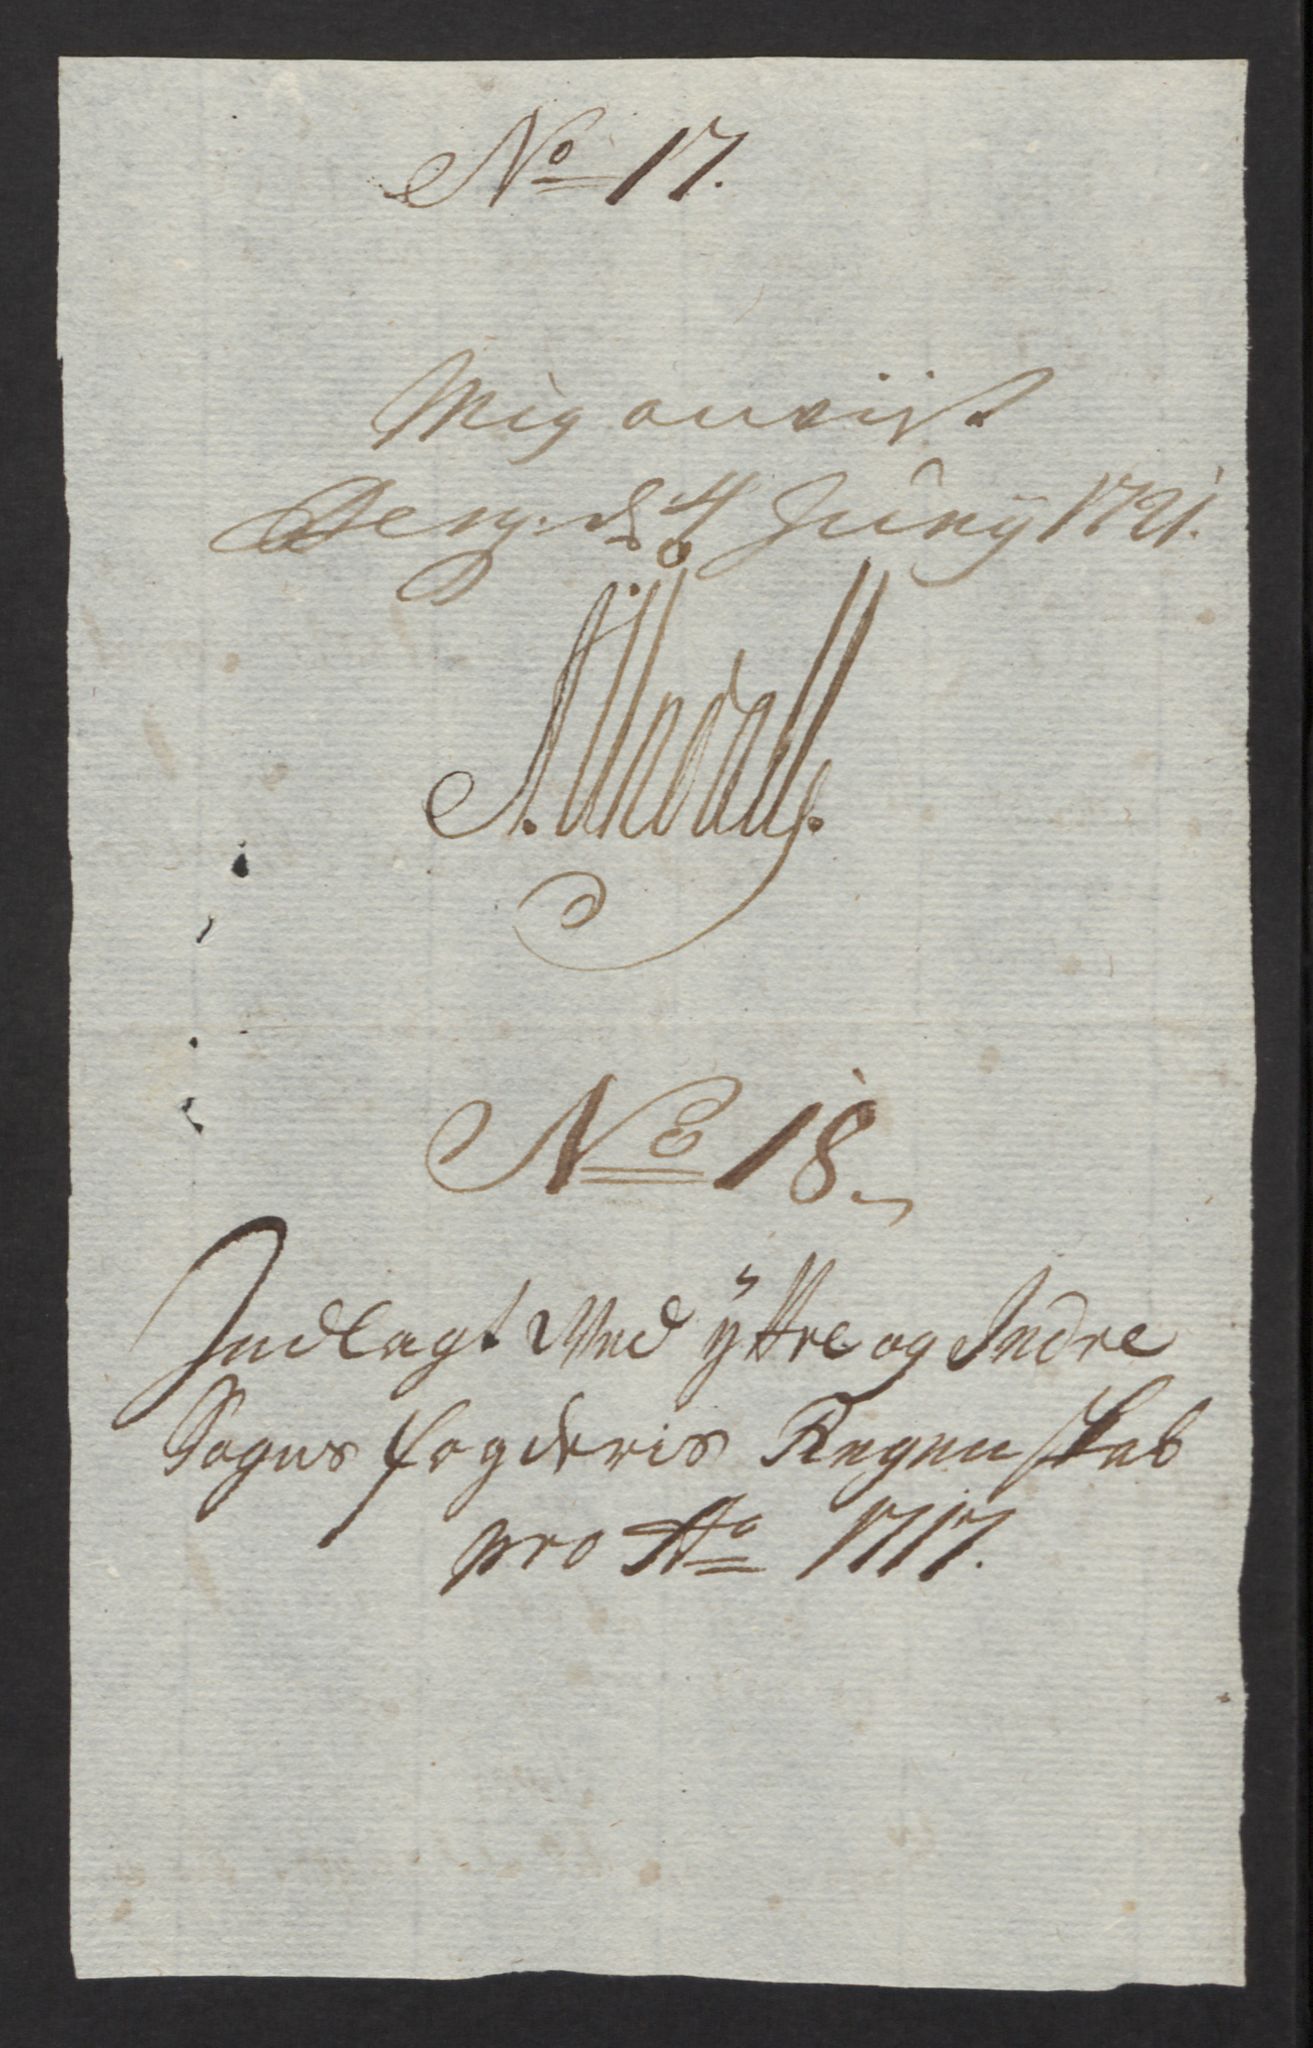 No 17.
Mig anvist
Berg. d 4 Juny 1721.
No 18.
Indlagt Med ÿttre og Indre
Sogns fogderis Regenskab
pro Ao 1717.